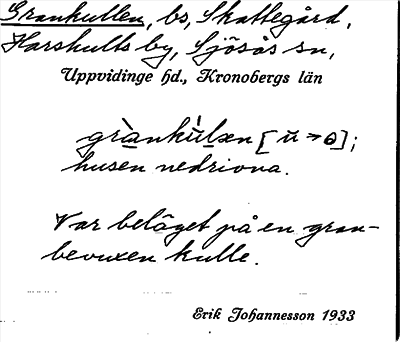 Grankullen, bs, Skattegård,
Harshults by, Sjösås sn,
Uppvidinge hd., Kronobergs län
grànkùlæn [ŭ → ɵ];
husen nedrivna.
Var beläget på en gran-
bevuxen kulle.
Erik Johannesson 1933